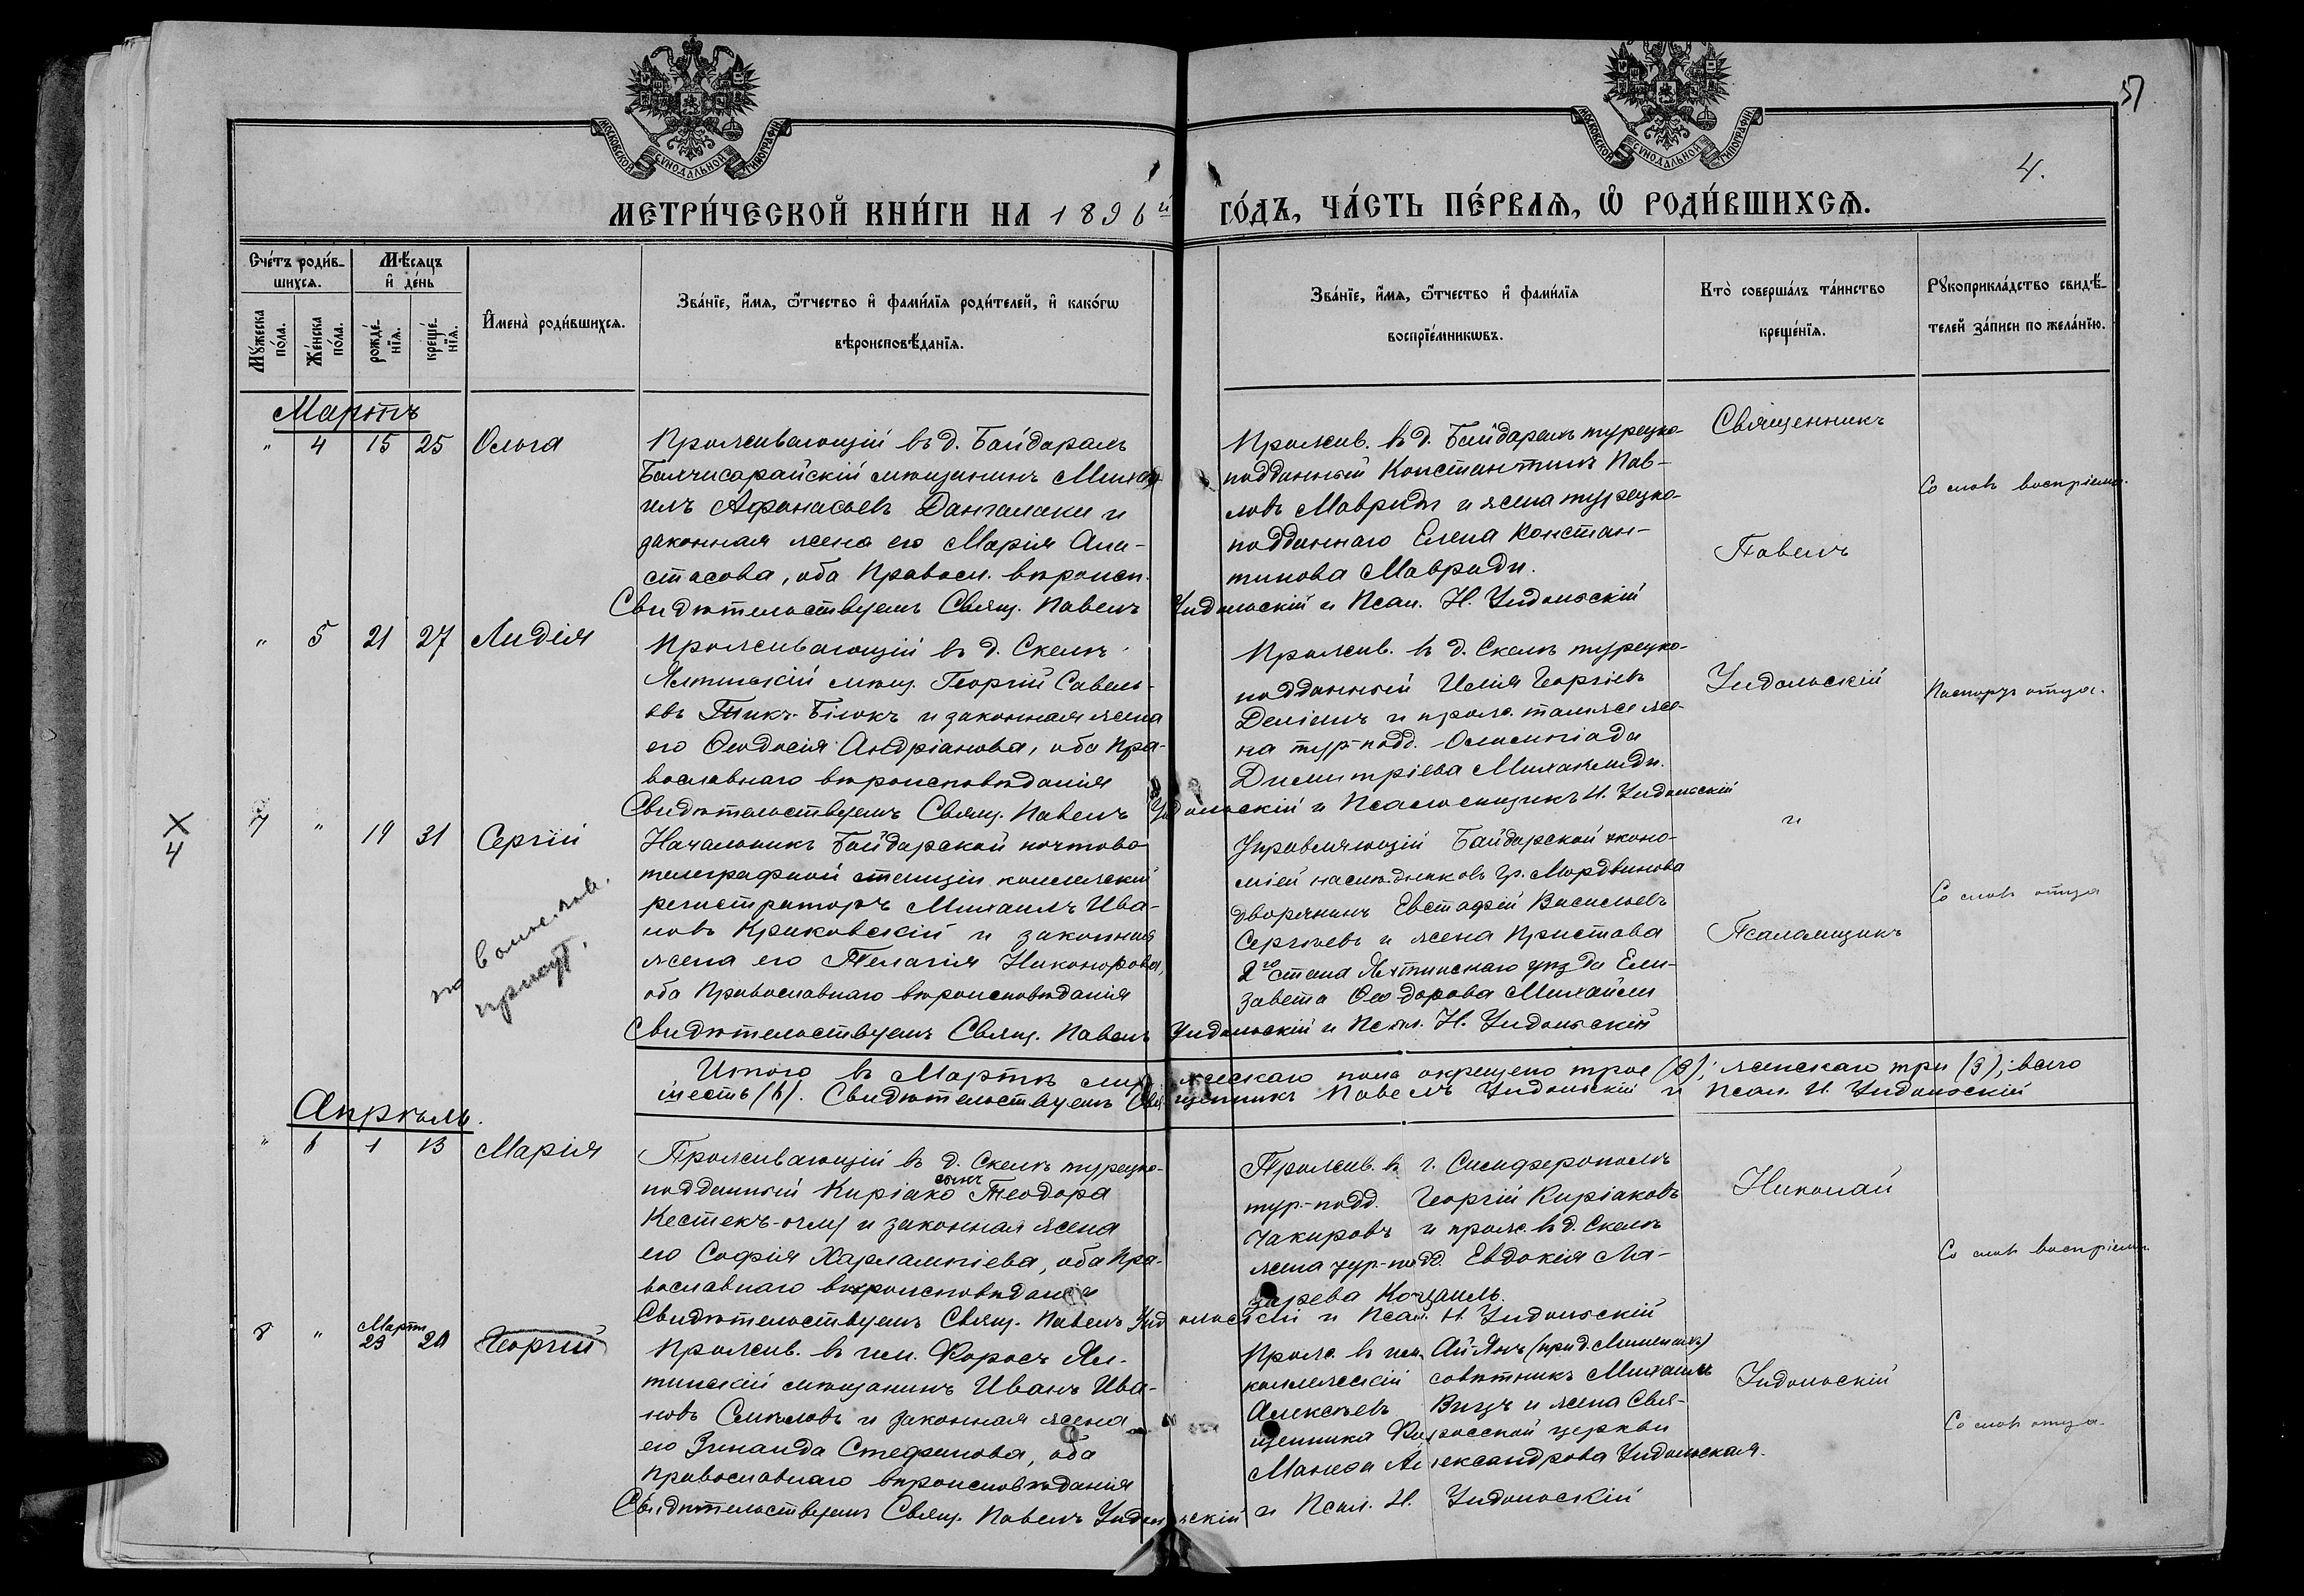 57
4.
МОСКОВСКОЙ СѴНОДАЛЬНОЙ ТИПОГРАФІИ
МОСКОВСКОЙ СѴНОДАЛЬНОЙ ТИПОГРАФІИ
МЕТРИ́ЧЕСКОЙ КНИ́ГИ НА 1896й ГО́ДЪ, ЧА́СТЬ ПЕ́РВАѦ, Ѡ҆ РОДИ́ВШИХСѦ.
Сче́тъ роди́в-
шихся.
Мѣ́сяцъ
и҆ де́нь
Мꙋ́жеска по́ла.
Же́нска по́ла.
рожде́-
нїя.
креще́-
нїя.
И҆мена̀ роди́вшихся.
Зва́нїе, и҆́мя, ѻ҆́тчество и҆ фами́лїя роди́телей, и҆ како́гѡ
вѣроисповѣ́данїя.
Зва́нїе, и҆́мя, ѻ҆́тчество и҆ фами́лїя
воспрїе́мникѡвъ.
Кто̀ соверша́лъ та́инство
креще́нїя.
Рꙋкоприкла́дство свидѣ́-
телей за́писи по жела́нїю.
Мартъ
" 4 15 25 Ольга
Проживающій въ д. Байдарахъ
Бахчисарайскій мѣщанинъ Миха-
илъ Афанасьевъ Дангалаки и
законная жена его Марія Ана-
стасова, оба Правосл. вѣроисп.
Прожив. въ д. Байдарахъ турецко-
подданный Константинъ Пав-
ловъ Мавриди и жена турецко-
подданнаго Елена Констан-
тинова Мавриди.
Священникъ
Павелъ
Со словъ воспріемн.
Свидѣтельствуемъ Свящ. Павелъ Удольскій и Псал. Н. Удольскій
" 5 21 27 Лидія
Проживающій въ д. Скеляхъ
Ялтинскій мѣщ. Георгій Савель-
евъ и законная жена
его Ѳеодосія Андріанова, оба Пра-
вославнаго вѣроисповѣданія
Прожив. въ д. Скеляхъ турецко-
подданный Илія Георгіевъ
и прож. тамже же-
на тур-подд. Олимпіада
Димитріева Михаилиди.
Удольскій
Паспортъ отца.
Свидѣтельствуемъ Свящ. Павелъ Удольскій и Псаломщикъ Н. Удольскій
Х
4
7 " 19 31 Сергій
Начальникъ Байдарской почтово-
телеграфной станціи коллежскій
регистраторъ Михаилъ Ива-
новъ Криковскій и законная
жена его Пелагія Никонорова,
оба Православнаго вѣроисповѣданія
Управляющій Байдарской эконо-
міей наслѣдниковъ гр. Мордвинова
дворянинъ Евстафій Васильевъ
Сергѣевъ и жена Пристава
2го стана Ялтинскаго уѣзда Ели-
завета Ѳеодорова Михайли
и
Псаломщикъ
Со словъ отца
Свидѣтельствуемъ Свящ. Павелъ Удольскій и Псал. Н. Удольскій
Итого въ Мартѣ мужескаго пола окрещено трое (3); женскаго три (3); всего
шесть (6). Свидѣтельствуемъ Священникъ Павелъ Удольскій и Псал. Н. Удольскій
Апрѣль.
" 6 1 13 Марія
Проживающій въ д. Скеляхъ турецко-
подданный Киріако сынъ Теодора
Кестекъ-оглу и законная жена
его Софія Харлампіева, оба Пра-
вославнаго вѣроисповѣданія
Прожив. въ г. Симферополѣ
тур-подд. Георгій Киріаковъ
Чакировъ и прож. въ д. Скеляхъ
жена тур-подд. Евдокія Ла-
зарева
Николай
Со словъ воспріемн.
Свидѣтельствуемъ Свящ. Павелъ Удольскій и Псал. Н. Удольскій
8 " Марта 23 21 Георгій
Прожив. въ им. Форосъ Ял-
тинскій мѣщанинъ Иванъ Ива-
новъ и законная жена
его Зинаида Стефанова, оба
Православнаго вѣроисповѣданія
Прож. въ им. Ай-Янъ
коллежскій совѣтникъ Михаилъ
Алексѣевъ и жена Свя-
щенника Форосской церкви
Александрова Удольская.
Удольскій
Со словъ отца.
Свидѣтельствуемъ Свящ. Павелъ Удольскій и Псал. Н. Удольскій